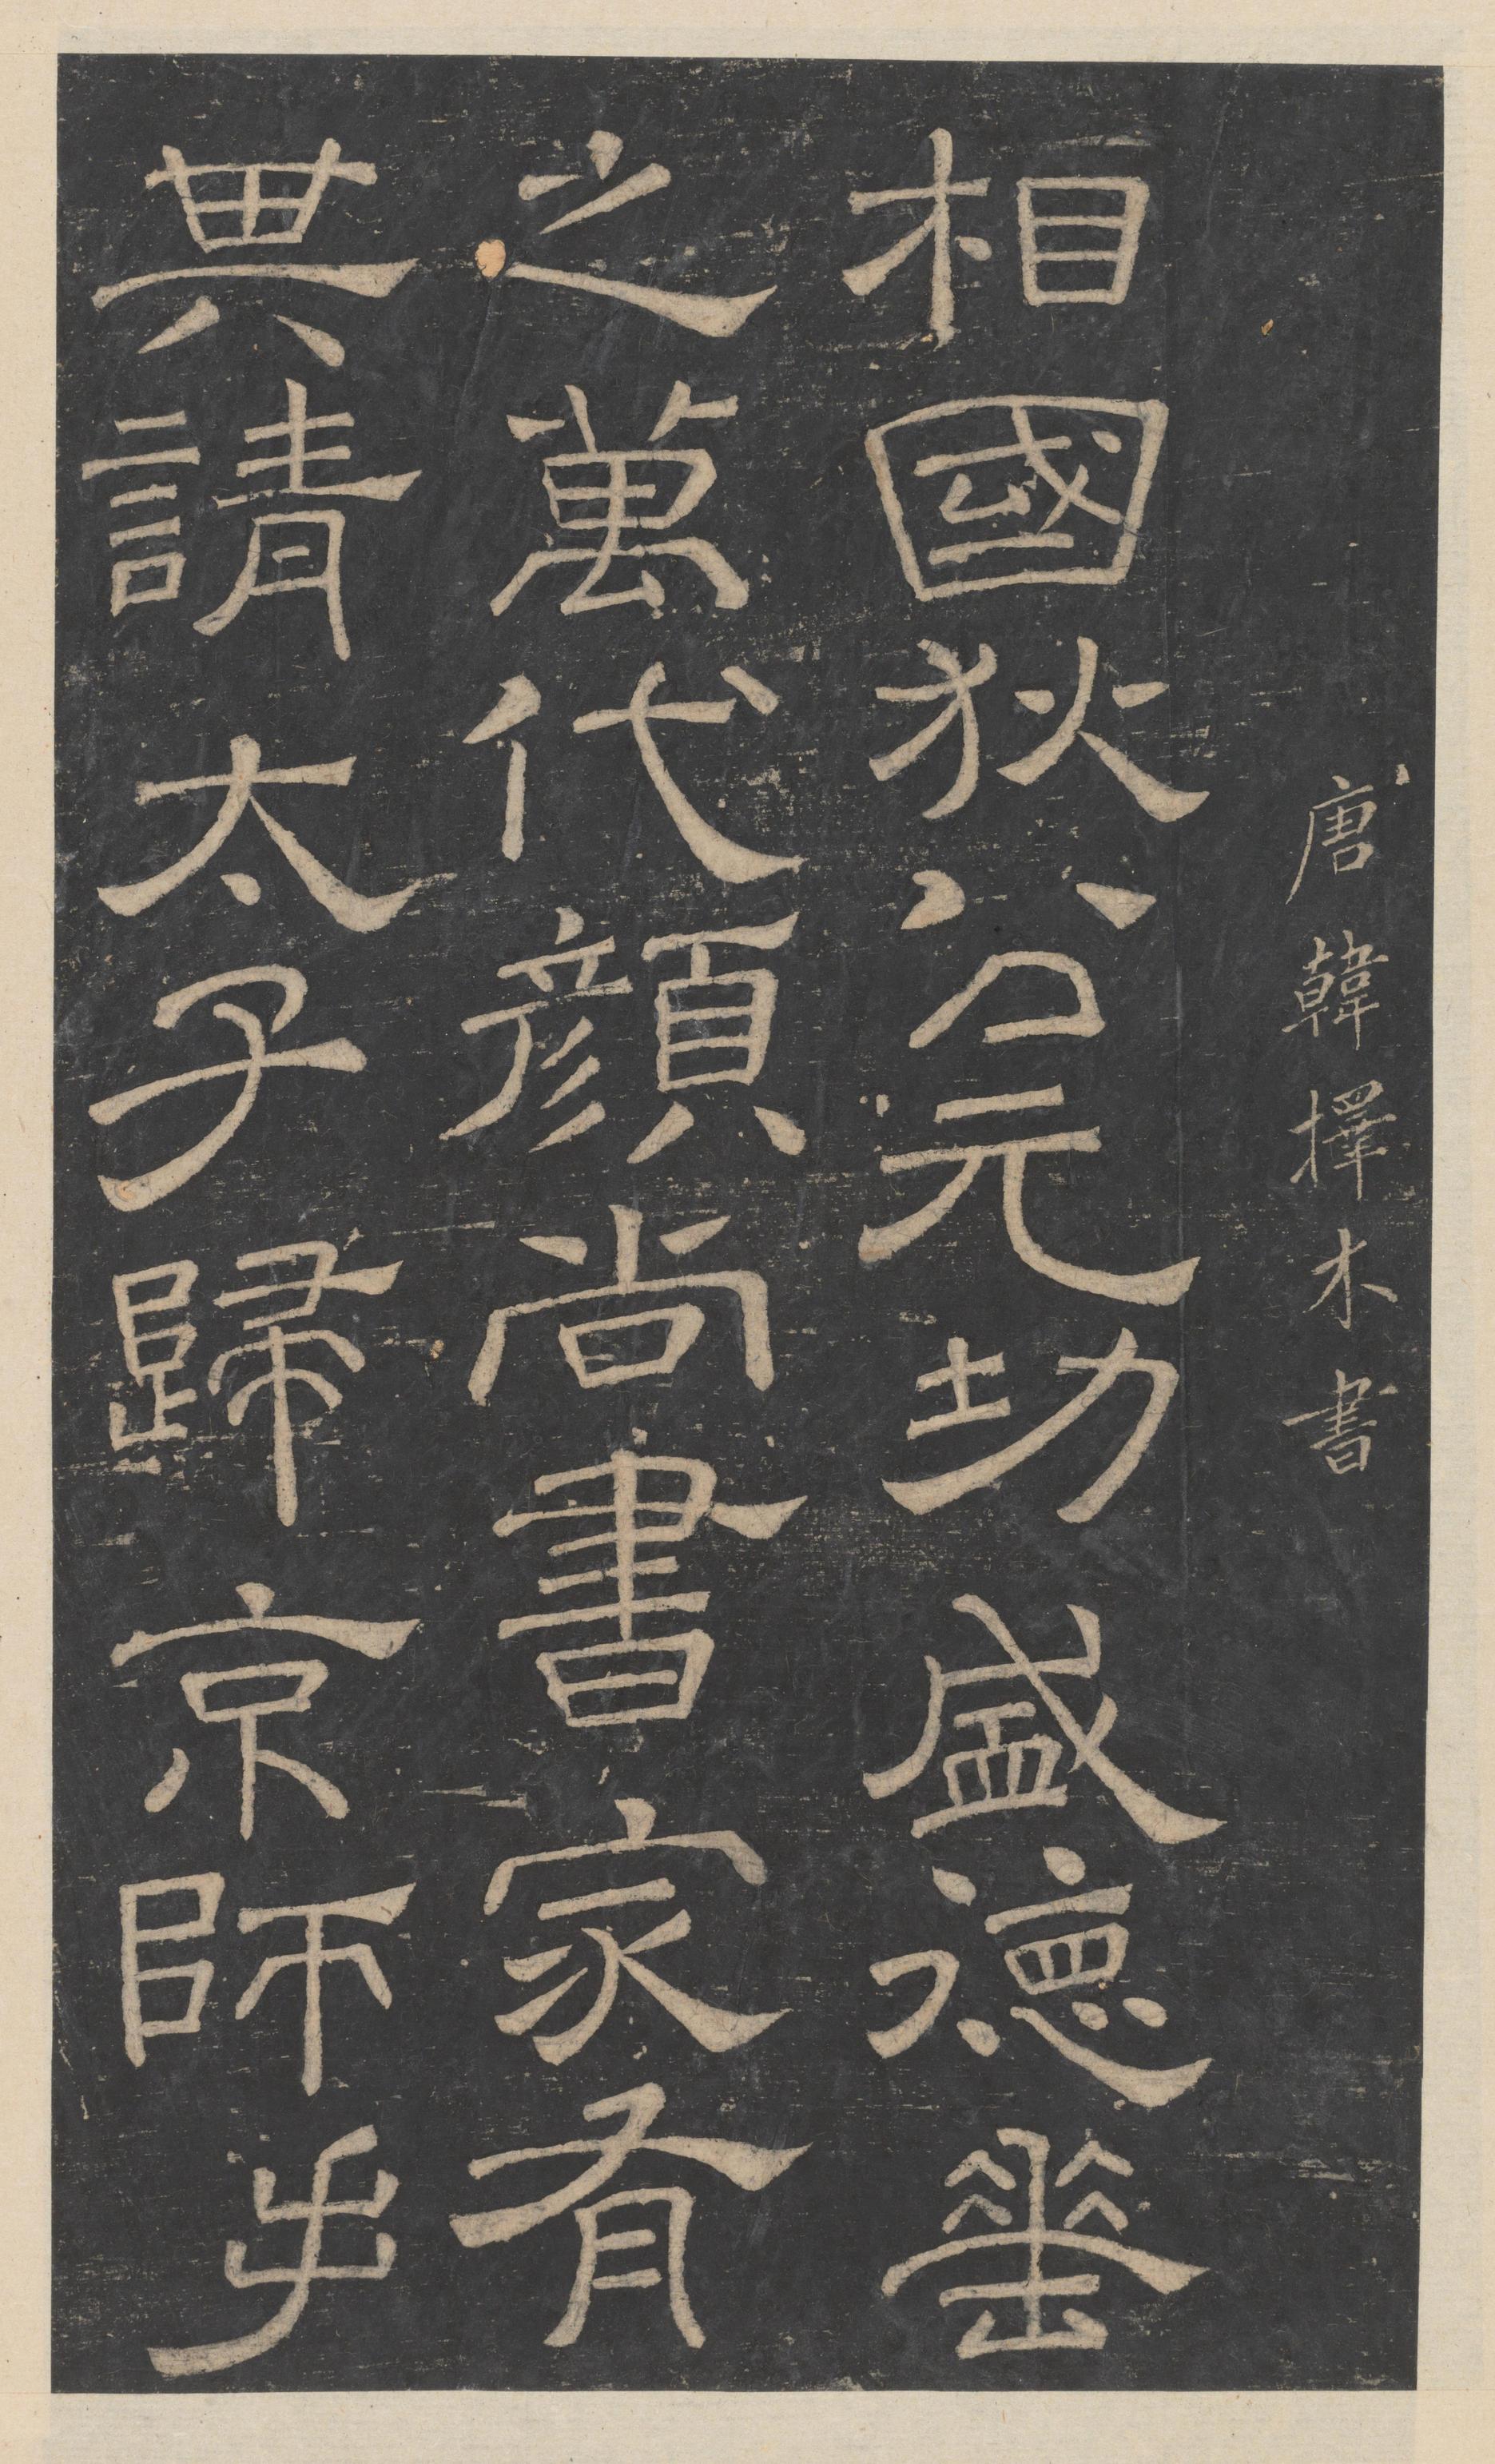 唐韓擇木書
相國狄公元功盛德垂
之萬代顏尚書家有
其請太子歸京師手